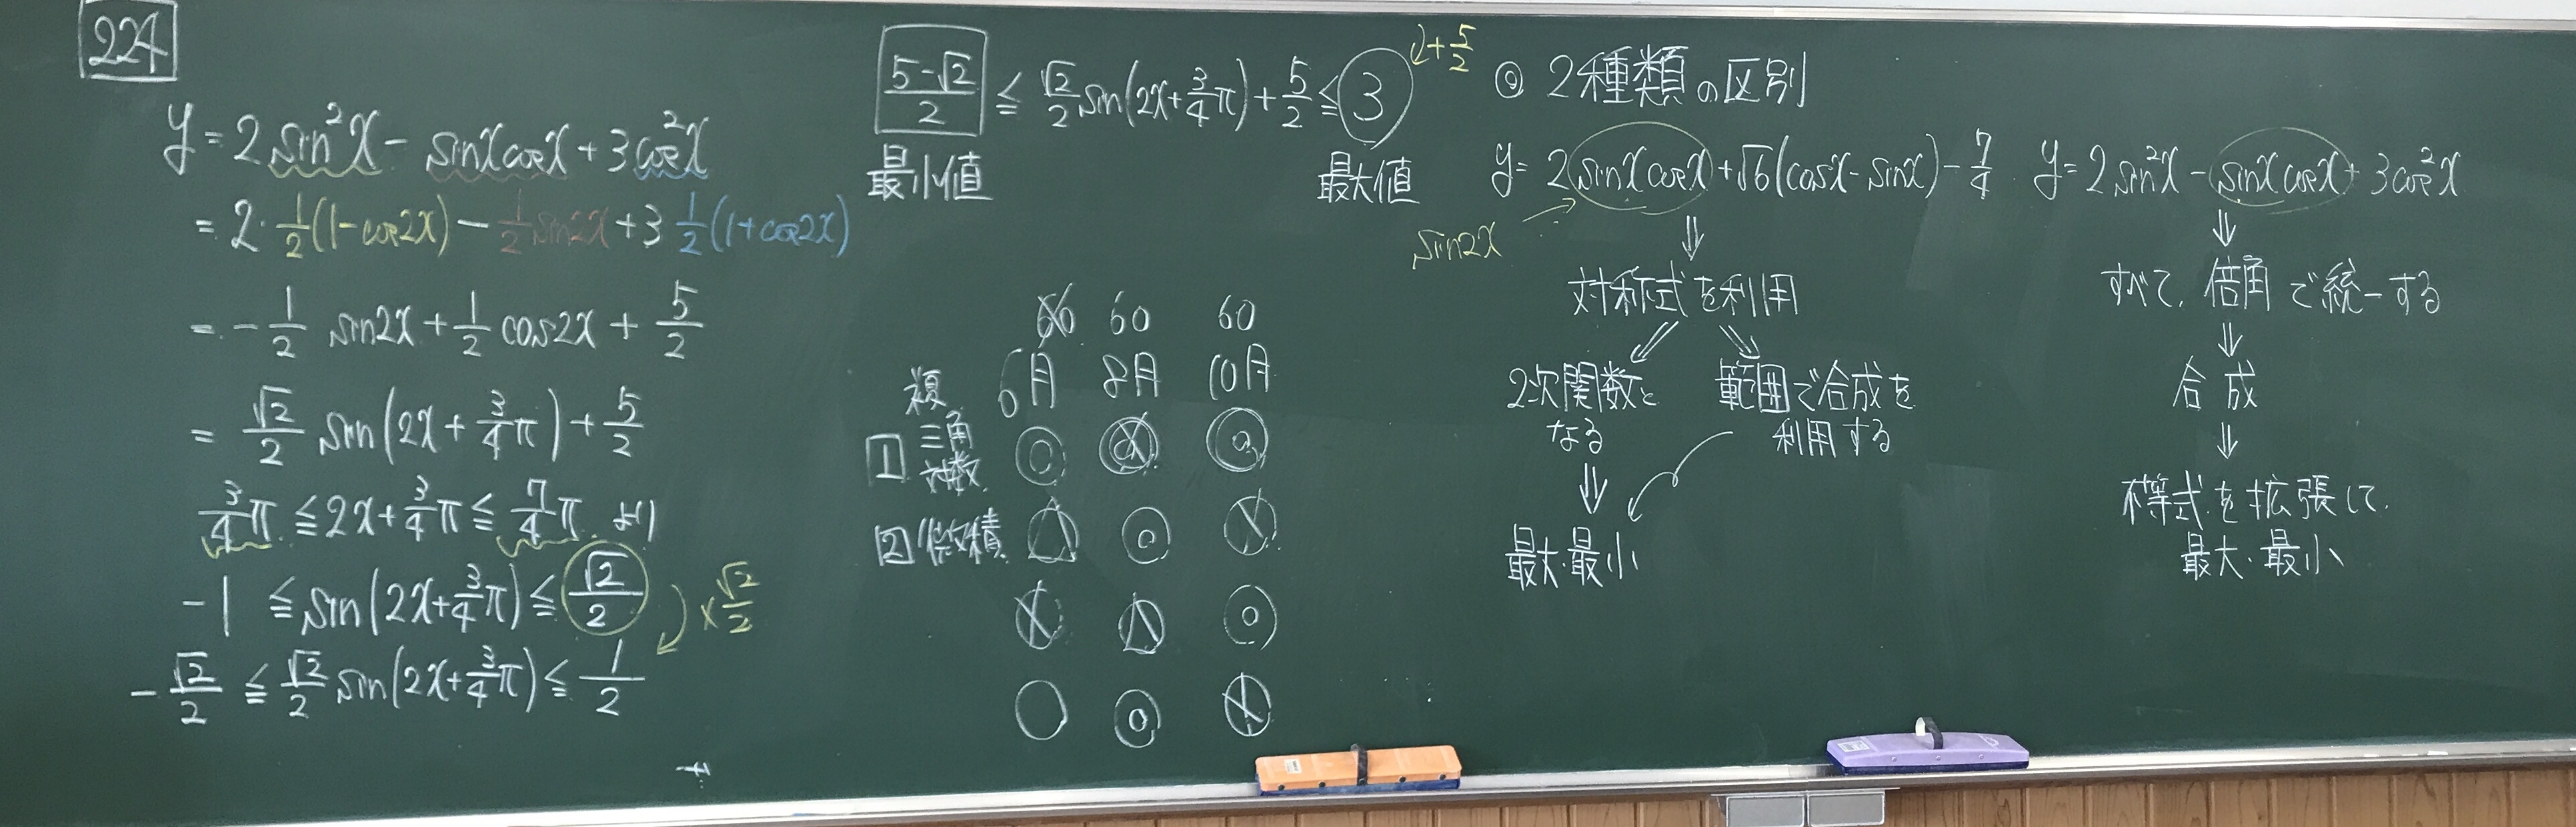 224
y = 2sin²x - sinxcosx + 3cos²x
= 2・1/2(1-cos2x) - 1/2 sin2x + 3 1/2(1+cos2x)
= -1/2 sin2x + 1/2 cos2x + 5/2
= √2/2 sin(2x + 3/4π) + 5/2
3/4π ≦ 2x + 3/4π ≦ 7/4π より
-1 ≦ sin(2x+3/4π) ≦ √2/2
×√2/2
-√2/2 ≦ √2/2 sin(2x+3/4π) ≦ 1/2
+5/2
5-√2/2 ≦ √2/2 sin(2x+3/4π) + 5/2 ≦ 3
最小値 最大値
60 60
6月 8月 10月
複
1 三角
対数
2 微積
◎ 2種類の区別
y = 2sinxcosx + √6(cosx - sinx) - 7/4
sin2x
⇓
対称式を利用
2次関数と
なる
範囲で合成を
利用する
⇓
最大・最小
y = 2sin²x - sinxcosx + 3cos²x
⇓
すべて、倍角で統一する
⇓
合成
⇓
不等式を拡張して、
最大・最小